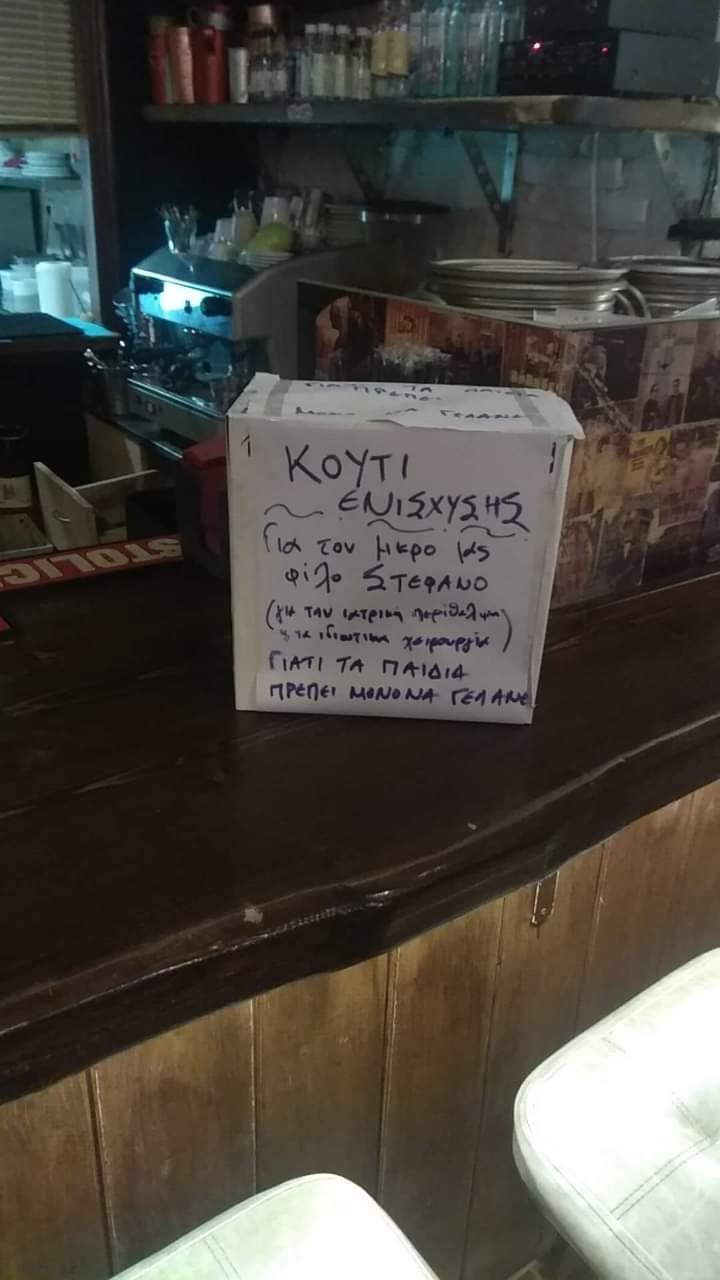 ΓΙΑΤΙ ΤΑ ΠΑΙΔΙΑ
ΠΡΕΠΕΙ
ΓΕΛΑΝΕ
ΚΟΥΤΙ
ΕΝΙΣΧΥΣΗΣ
Για τον μικρο μας
φίλο ΣΤΕΦΑΝΟ
(για την ιατρικη περίθαλψη
χειρουργία)
ΓΙΑΤΙ ΤΑ ΠΑΙΔΙΑ
ΠΡΕΠΕΙ ΜΟΝΟ ΝΑ ΓΕΛΑΝΕ
STOLIC